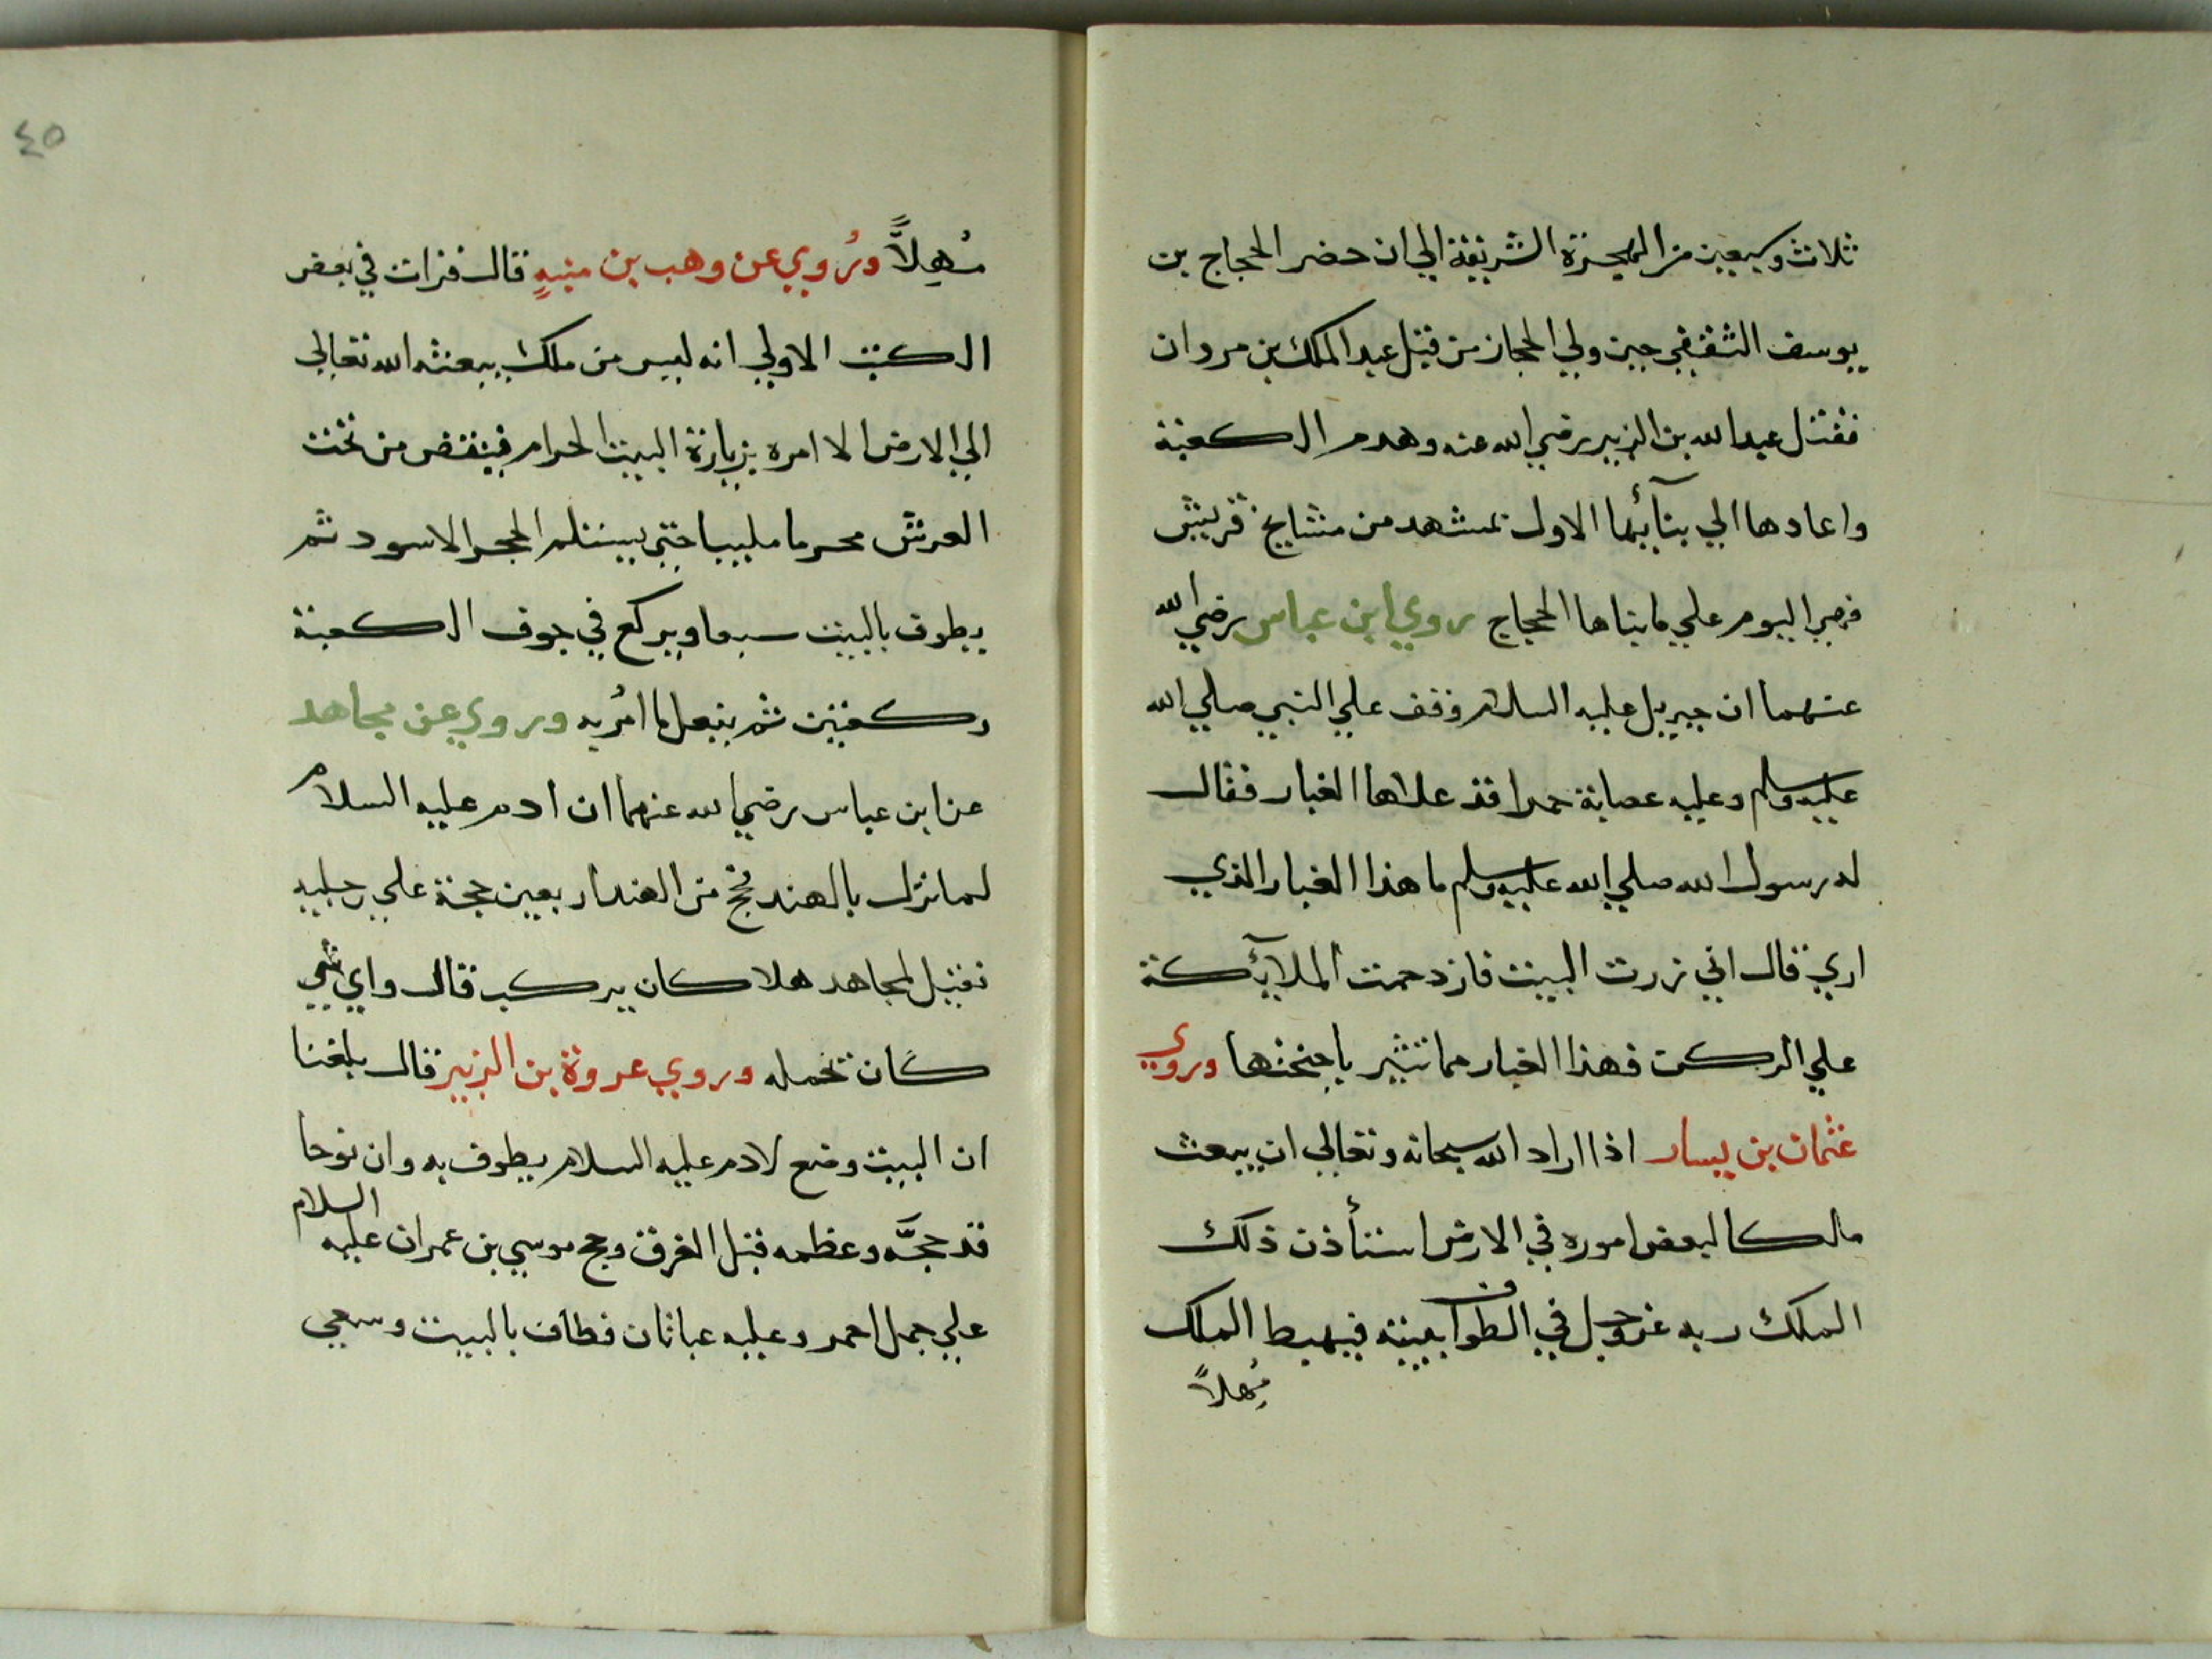 ثلاث وسبعين من الهجرة الشريفة الي ان حضر الحجاج بن
يوسف الثقفي حين ولي الحجاز من قبل عبد الملك بن مروان
فقتل عبد الله بن الزبير رضي الله عنه وهدم الكعبة
واعادها الي بنآئها الاول بمشهد من مشايخ قريش
فهي اليوم علي ما بناها الحجاج روي ابن عباس رضي الله
عنهما ان جبريل عليه السلام وقف علي النبي صلي الله
عليه وسلم وعليه عصابة حمرا قد علاها الغبار فقال
له رسول الله صلي الله عليه وسلم ما هذا الغبار الذي
اري قال اني زرت البيت فازدحمت الملآئكة
علي الركن فهذا الغبار مما تثير باجنحتها وروي
عثمان بن يسار اذا اراد الله سبحانه وتعالي ان يبعث
ملكا لبعض اموره في الارض استأذن ذلك
الملك ربه عز وجل في الطواف ببيته فيهبط الملك
مُهلاً
مُهِلاًّ ورُوي عن وهب بن منبهٍ قال قرات في بعض
الكتب الاولي انه ليس من ملك يبعثه الله تعالي
الي الارض الا امره بزيارة البيت الحرام فينقض من تحت
العرش محرما ملبيا حتي يستلم الحجر الاسود ثم
يطوف بالبيت سبعا ويركع في جوف الكعبة
ركعتين ثم يفعل ما امُر به وروي عن مجاهد
عن ابن عباس رضي الله عنهما ان ادم عليه السلام
لما نزل بالهند حج من الهند اربعين حجة علي رجليه
فقيل لمجاهد هلا كان يركب قال واي شي
كان تحمله وروي عروة بن الزبير قال بلغنا
ان البيت وضع لادم عليه السلام يطوف به وان نوحا
قد حجَّه وعظمه قبل الغرق وحج موسي بن عمران عليه السلام
علي جمل احمر وعليه عباتان فطاف بالبيت وسعي
٤٥